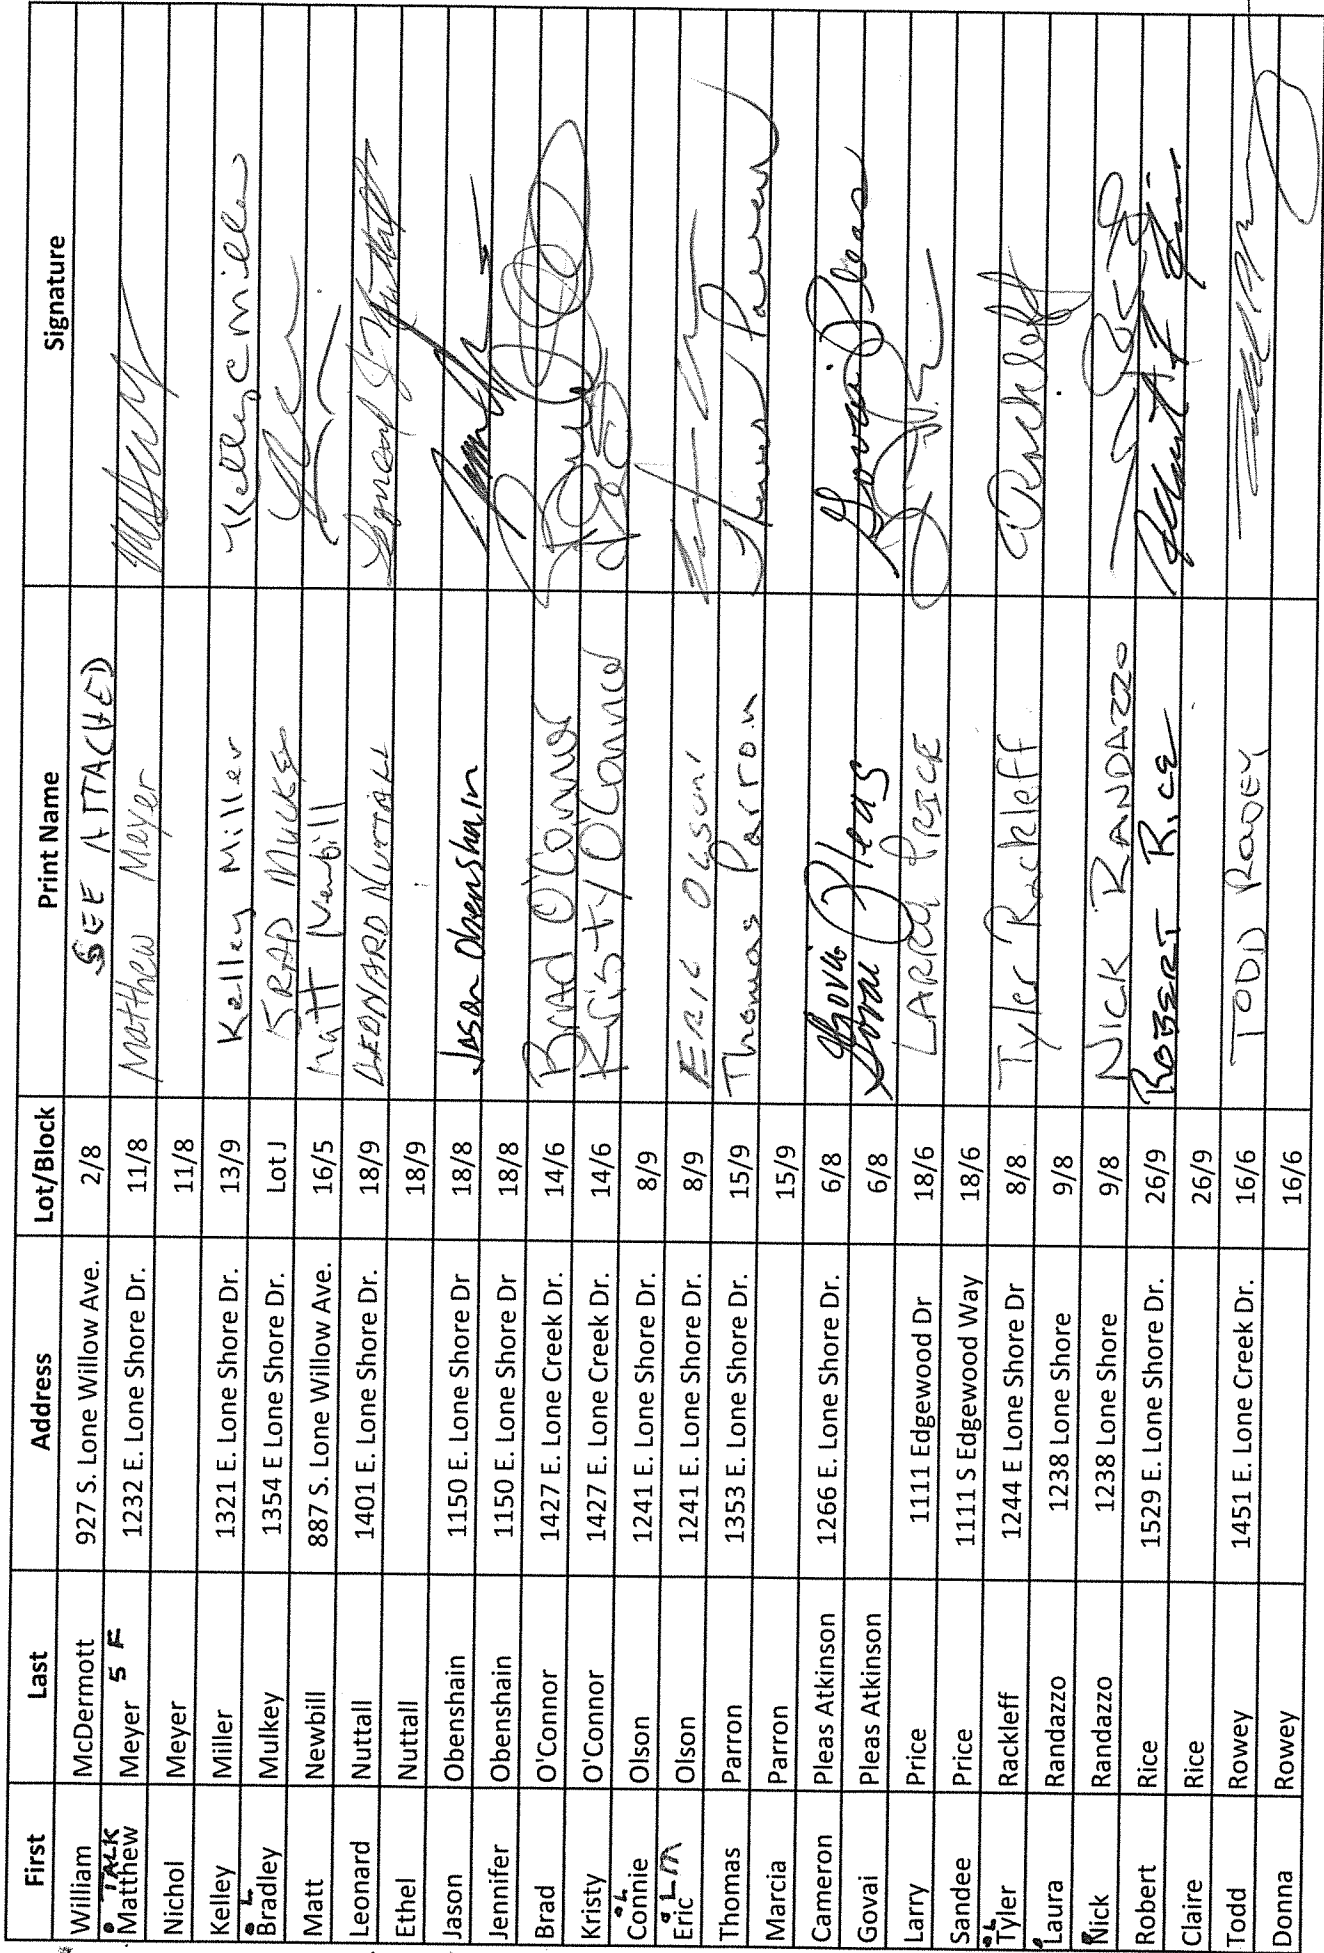 First Last Address Lot/Block Print Name Signature
William McDermott 927 S. Lone Willow Ave. 2/8 SEE ATTACHED
• TALK
Matthew Meyer 5 F 1232 E. Lone Shore Dr. 11/8 Matthew Meyer
Nichol Meyer 11/8
Kelley Miller 1321 E. Lone Shore Dr. 13/9 Kelley Miller Kelley C Miller
• L
Bradley Mulkey 1354 E Lone Shore Dr. Lot J
Matt Newbill 887 S. Lone Willow Ave. 16/5 Matt Newbill
Leonard Nuttall 1401 E. Lone Shore Dr. 18/9 LEONARD NUTTALL
Ethel Nuttall 18/9
Jason Obenshain 1150 E. Lone Shore Dr 18/8 Jason Obenshain
Jennifer Obenshain 1150 E. Lone Shore Dr 18/8
Brad O'Connor 1427 E. Lone Creek Dr. 14/6 Brad O'Connor
Kristy O'Connor 1427 E. Lone Creek Dr. 14/6 Kristy O'Connor
• L
Connie Olson 1241 E. Lone Shore Dr. 8/9
• LM
Eric Olson 1241 E. Lone Shore Dr. 8/9 ERIC OLSON
Thomas Parron 1353 E. Lone Shore Dr. 15/9 Thomas Parron
Marcia Parron 15/9
Cameron Pleas Atkinson 1266 E. Lone Shore Dr. 6/8 Govai
Govai Pleas Atkinson 6/8 Govai Pleas Govai Pleas
Larry Price 1111 Edgewood Dr 18/6 LARRY PRICE
Sandee Price 1111 S Edgewood Way 18/6
• L
Tyler Rackleff 1244 E Lone Shore Dr 8/8 Tyler Rackleff
Laura Randazzo 1238 Lone Shore 9/8
Nick Randazzo 1238 Lone Shore 9/8 NICK RANDAZZO
Robert Rice 1529 E. Lone Shore Dr. 26/9 ROBERT RICE
Claire Rice 26/9
Todd Rowey 1451 E. Lone Creek Dr. 16/6 TODD ROWEY
Donna Rowey 16/6